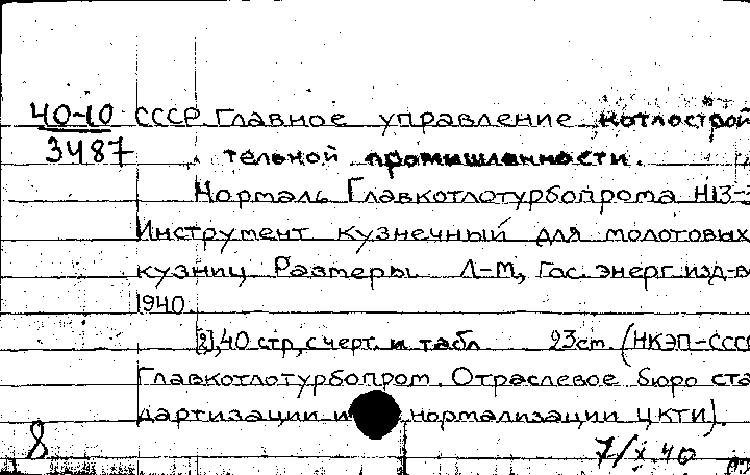 40-10 СССР. Главное управление котлострой
3487 тельной промышленности.
Нормаль Главкотлотурбопрома Н13-3
Инструмент кузнечный для молотовых
кузниц. Размеры. Л-М, Гос. энерг. изд-в
1940.
[2],40 стр, с черт. и табл 23 см. (НКЭП-СССР
Главкотлотурбопром. Отраслевое бюро ста
дартизации и нормализации ЦКТИ).
8 7/X.40 т